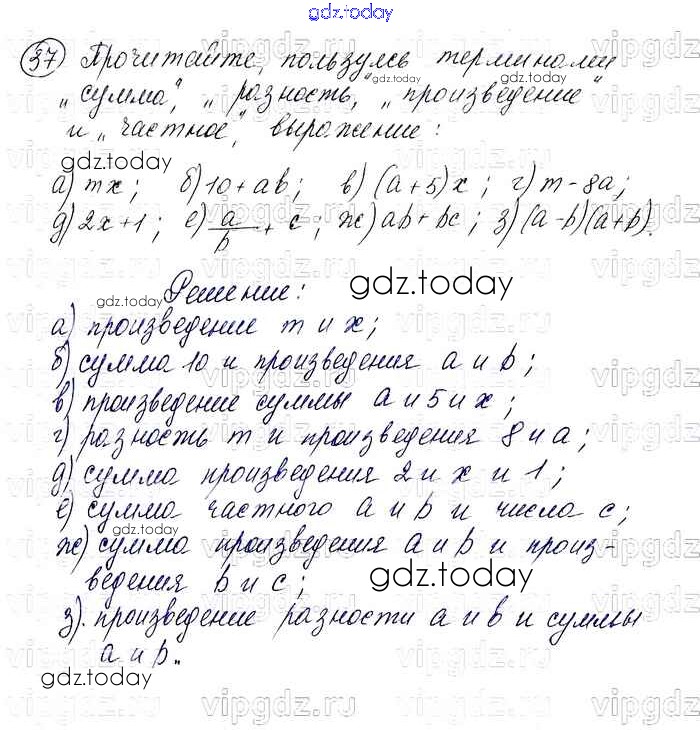 gdz.today
37) Прочитайте, пользуясь терминами
„сумма", „разность", „произведение"
и „частное", выражение:
gdz.today
а) mx; б) 10+ab; в) (a+5)x; г) m-8a;
д) 2x+1; е) a/b + c; ж) ab+bc; з) (a-b)(a+b).
Решение:
gdz.today
gdz.today
а) произведение m и x;
б) сумма 10 и произведения a и b;
в) произведение суммы a и 5 и x;
г) разность m и произведения 8 и a;
д) сумма произведения 2 и x и 1;
е) сумма частного a и b и числа c;
gdz.today
ж) сумма произведения a и b и произ-
ведения b и c;
gdz.today
з). произведение разности a и b и суммы
a и b.
gdz.today
vipgdz.ru